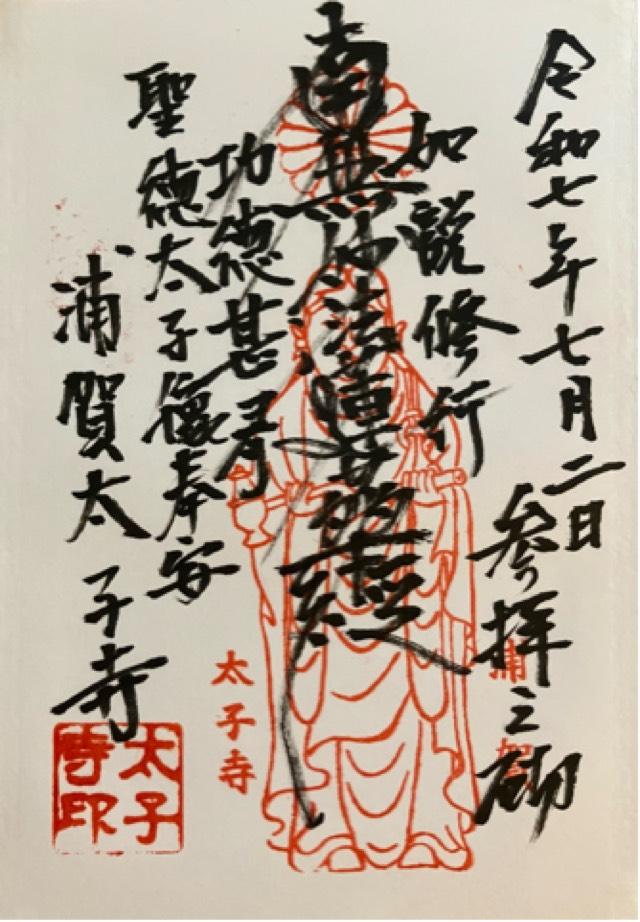 令和七年七月二日
参拝之砌
如説修行
南無妙法蓮華経
功徳甚多
聖徳太子像奉安
浦賀太子寺
浦賀
太子寺
太子
寺印